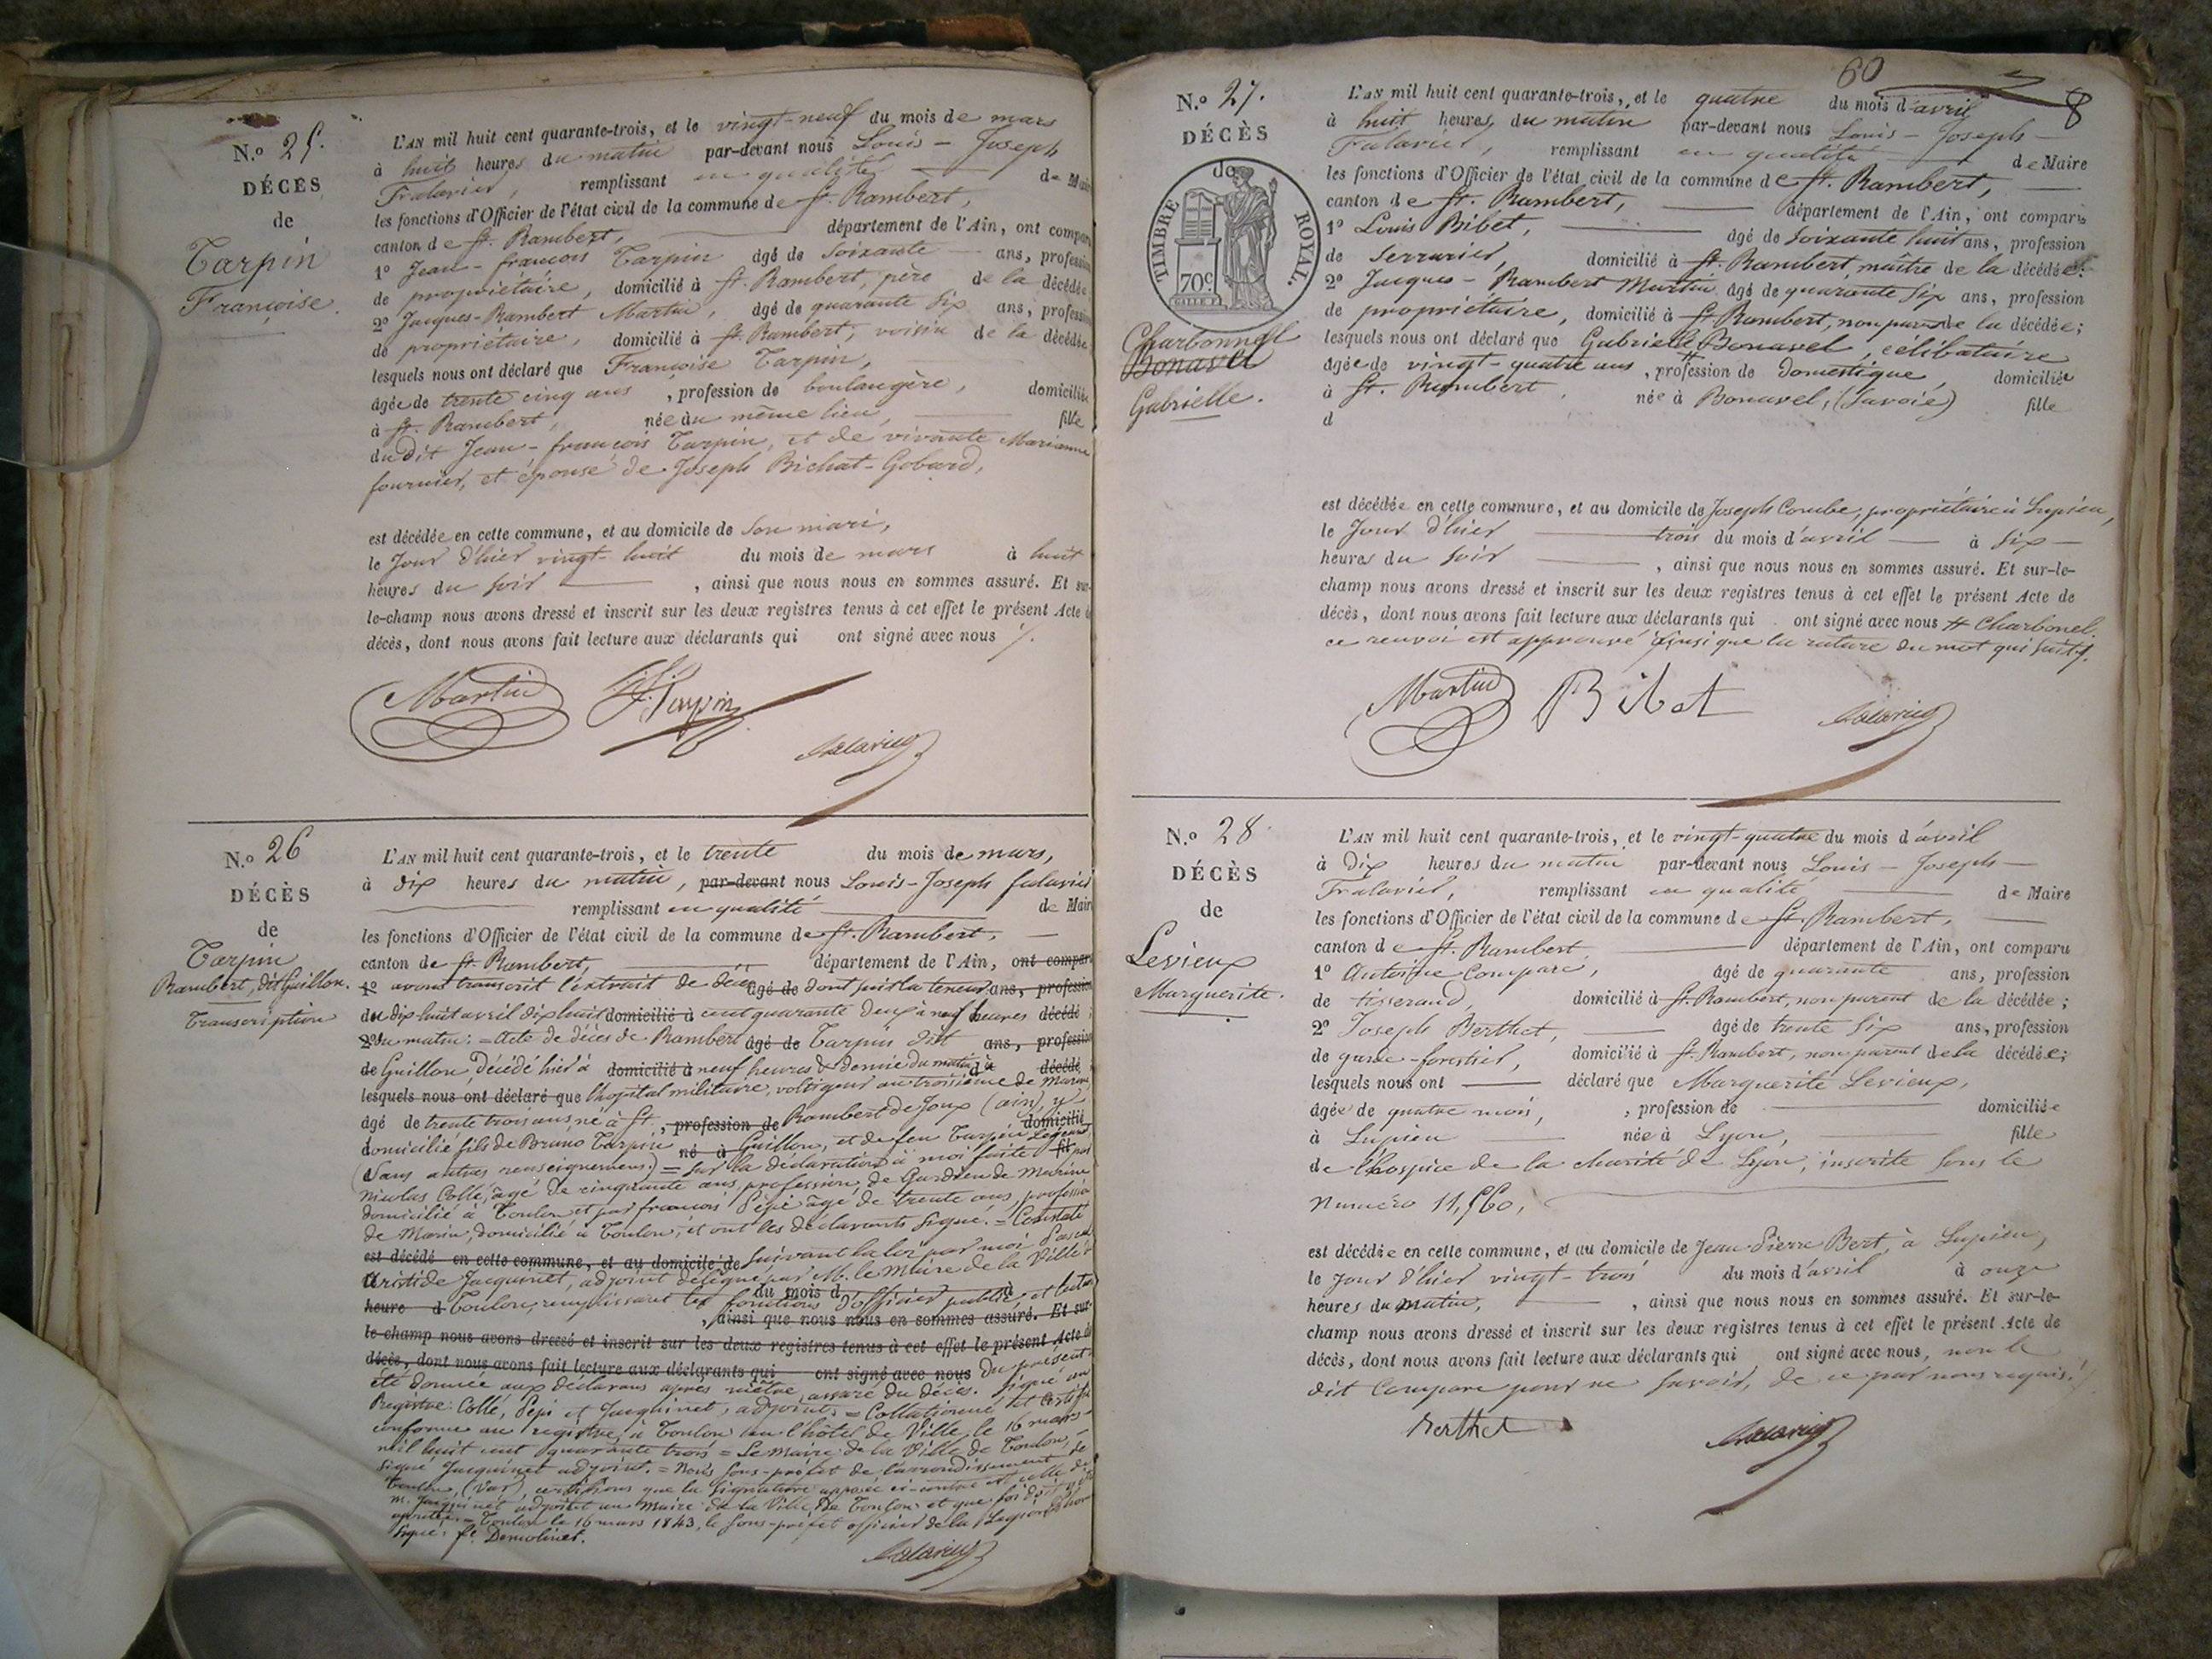 N.º 25.
DÉCÈS
de
Tarpin
Françoise.
L'AN mil huit cent quarante-trois, et le vingt-neuf du mois de mars
à huit heures du matin par-devant nous Louis – Joseph
Falavier, remplissant en qualité de Maire
les fonctions d'Officier de l'état civil de la commune de St. Rambert,
canton de St. Rambert, département de l'Ain, ont comparu
1º Jean-françois Tarpin âgé de soixante ans, profession
de propriétaire, domicilié à St. Rambert, père de la décédée
2º Jacques-Rambert Martin, âgé de quarante six ans, profession
de propriétaire, domicilié à St. Rambert, voisin de la décédée
lesquels nous ont déclaré que Françoise Tarpin,
âgée de trente cinq ans, profession de boulangère, domiciliée
à St. Rambert, née au même lieu, fille
du dit Jean-françois Tarpin, et de vivante Marianne
fournier, et épouse de Joseph Bichat-Gobard,
est décédée en cette commune, et au domicile de son mari,
le Jour d'hier vingt-huit du mois de mars à huit
heures du soir, ainsi que nous nous en sommes assuré. Et sur-
le-champ nous avons dressé et inscrit sur les deux registres tenus à cet effet le présent Acte de
décès, dont nous avons fait lecture aux déclarants qui ont signé avec nous
Martin Tarpin
Falavier
N.º 26
DÉCÈS
de
Tarpin
Rambert, dit Guillon.
Transcription
L'AN mil huit cent quarante-trois, et le trente du mois de mars,
à dix heures du matin, par-devant nous Louis-Joseph falavier
remplissant en qualité de Maire
les fonctions d'Officier de l'état civil de la commune de St. Rambert,
canton de St. Rambert, département de l'Ain, ont comparu
1º avons transcrit l'extrait de décès âgé de dont suit la teneur ans, profession
du dix huit avril dix huit domicilié à cent quarante deux à neuf heures décédé
2º du matin. = acte de décès de Rambert âgé de Tarpin dit ans, profession
de Guillon, décédé hier à domicilié à neuf heures & demie du matin à décédé
lesquels nous ont déclaré que l'hopital militaire, voltigeur au troisième de Marine,
âgé de trente trois ans né à St., profession de Rambert de Joux (ain), y domicilié
domicilié fils de Bruno Tarpin né à Guillon, et de feu Tarpin fil
(Sans autres renseignemens.) = sur la déclaration à moi faite par
Nicolas Collé, âgé de cinquante ans, profession de Gardien de Marine
domicilié à Toulon et par françois Pépi âgé de trente ans, profession
de Marin, domicilié à Toulon, et ont les déclarants signé. = Constaté
est décédé en cette commune, et au domicile de suivant la loi par moi Pascal
Aristide Jacquinet, adjoint délégué par M. le Maire de la Ville de
heure d Toulon, remplissant les du mois d fonctions d'officier public, et lecture à
, ainsi que nous nous en sommes assuré. Et sur-
le-champ nous avons dressé et inscrit sur les deux registres tenus à cet effet le présent Acte de
décès, dont nous avons fait lecture aux déclarants qui ont signé avec nous du présent
été donnée aux déclarans après m'être assuré du décès. Signé au
Registre: Collé, Pépi et Jacquinet, adjoint. = Collationné et certifié
conforme au registre, à Toulon en l'hôtel de Ville, le 16 mars
mil huit cent quarante trois = Le maire de la Ville de Toulon,
signé Jacquinet adjoint. = Nous sous-préfet de l'arrondissement de
Toulon, (Var), certifions que la signature apposée ci-contre est celle de
M. Jacquinet adjoint au Maire de la Ville de Toulon et que foi doit y être
= Toulon le 16 mars 1843, le sous-préfet officier de la Légion d'hon
signé: fl. Demolinet.
Falavier
60
8
N.º 27.
DÉCÈS
de
TIMBRE ROYAL.
70c
Charbonnel
Bonavel
Gabrielle.
L'AN mil huit cent quarante-trois, et le quatre du mois d'avril
à huit heures du matin par-devant nous Louis – Joseph –
Falavier, remplissant en qualité de Maire
les fonctions d'Officier de l'état civil de la commune de St. Rambert,
canton de St. Rambert, département de l'Ain, ont comparu
1º Louis Bibet, âgé de soixante huit ans, profession
de serrurier, domicilié à St. Rambert, maître de la décédée;
2º Jacques-Rambert Martin âgé de quarante six ans, profession
de propriétaire, domicilié à St. Rambert, non parent de la décédée;
lesquels nous ont déclaré que Gabrielle # Bonavel, célibataire
âgée de vingt-quatre ans, profession de domestique, domiciliée
à St. Rambert, née à Bonavel, (Savoie) fille
d
est décédée en cette commune, et au domicile de Joseph Combe, propriétaire à Lupieu,
le Jour d'hier trois du mois d'avril à six
heures du soir, ainsi que nous nous en sommes assuré. Et sur-le-
champ nous avons dressé et inscrit sur les deux registres tenus à cet effet le présent Acte de
décès, dont nous avons fait lecture aux déclarants qui ont signé avec nous # Charbonel.
ce renvoi est approuvé ainsi que la rature du mot qui suit.
Martin Bibet Falavier
N.º 28
DÉCÈS
de
Levieux
Marguerite.
L'AN mil huit cent quarante-trois, et le vingt-quatre du mois d'avril
à dix heures du matin par-devant nous Louis – Joseph –
Falavier, remplissant en qualité de Maire
les fonctions d'Officier de l'état civil de la commune de St. Rambert,
canton de St. Rambert département de l'Ain, ont comparu
1º Antoine Compare, âgé de quarante ans, profession
de tisserand, domicilié à St. Rambert, non parent de la décédée;
2º Joseph Berthet, âgé de trente six ans, profession
de garde-forestier, domicilié à St. Rambert, non parent de la décédée;
lesquels nous ont déclaré que Marguerite Levieux,
âgée de quatre mois, profession de domiciliée
à Lupieu née à Lyon, fille
de l'hospice de la charité de Lyon, inscrite sous le
Numéro 11,560,
est décédée en cette commune, et au domicile de Jean-Pierre Bert, à Lupieu,
le Jour d'hier vingt-trois du mois d'avril à onze
heures du matin, ainsi que nous nous en sommes assuré. Et sur-le-
champ nous avons dressé et inscrit sur les deux registres tenus à cet effet le présent Acte de
décès, dont nous avons fait lecture aux déclarants qui ont signé avec nous, non le
dit Compare pour ne savoir, de ce par nous requis.
Berthet Falavier